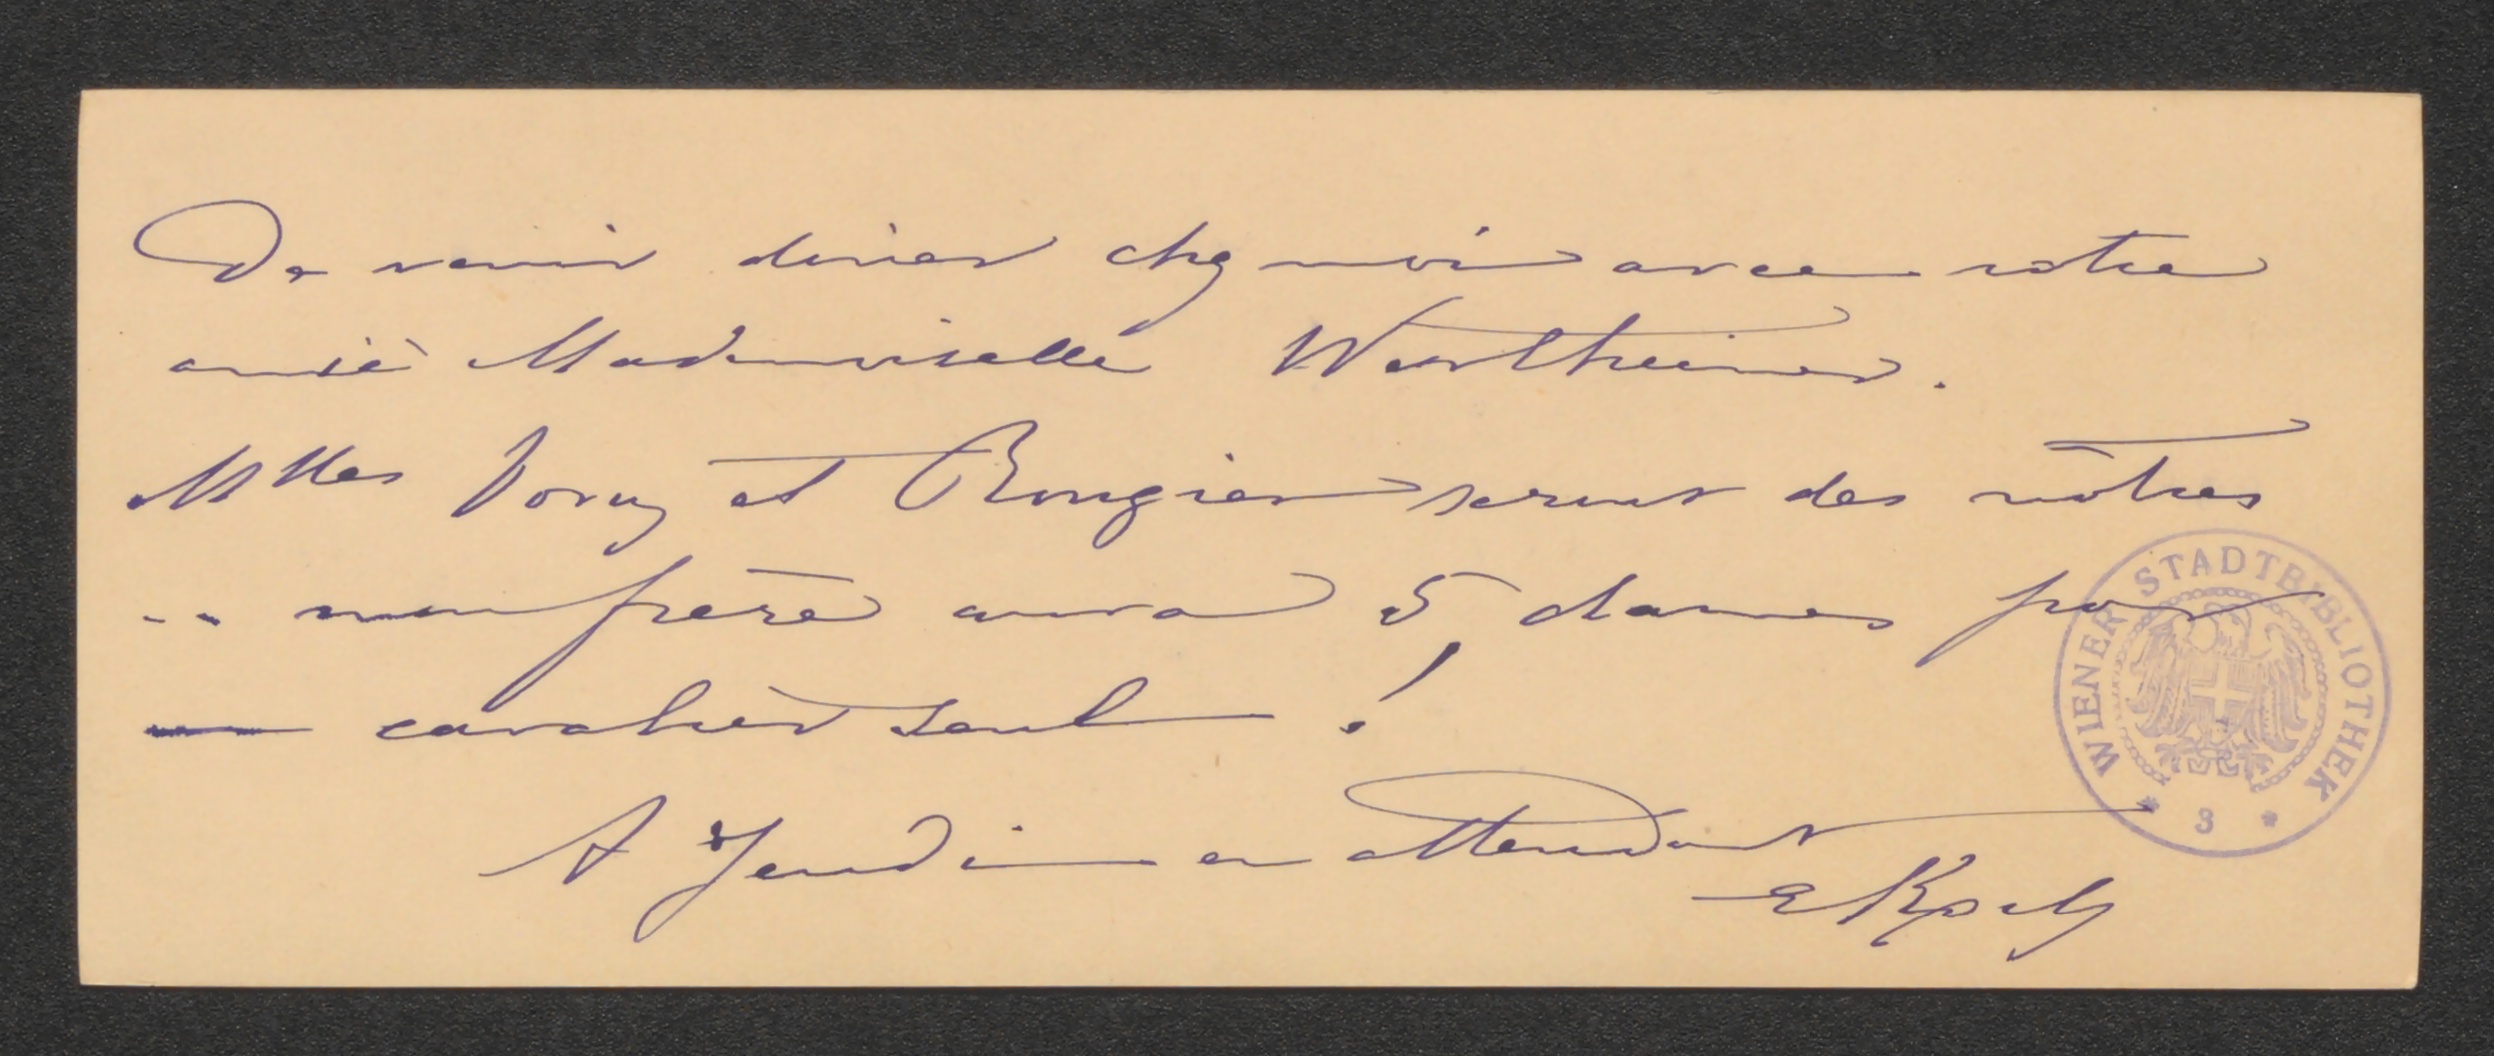 De venir diner chez moi avec votre
amie Mademoiselle Wertheimer.
Mlles et Rougier seront des nôtres
.. mon frère aura 5 dames pour
— cavalier seul !
A Jeudi en attendant
WIENER STADTBIBLIOTHEK
* 3 *